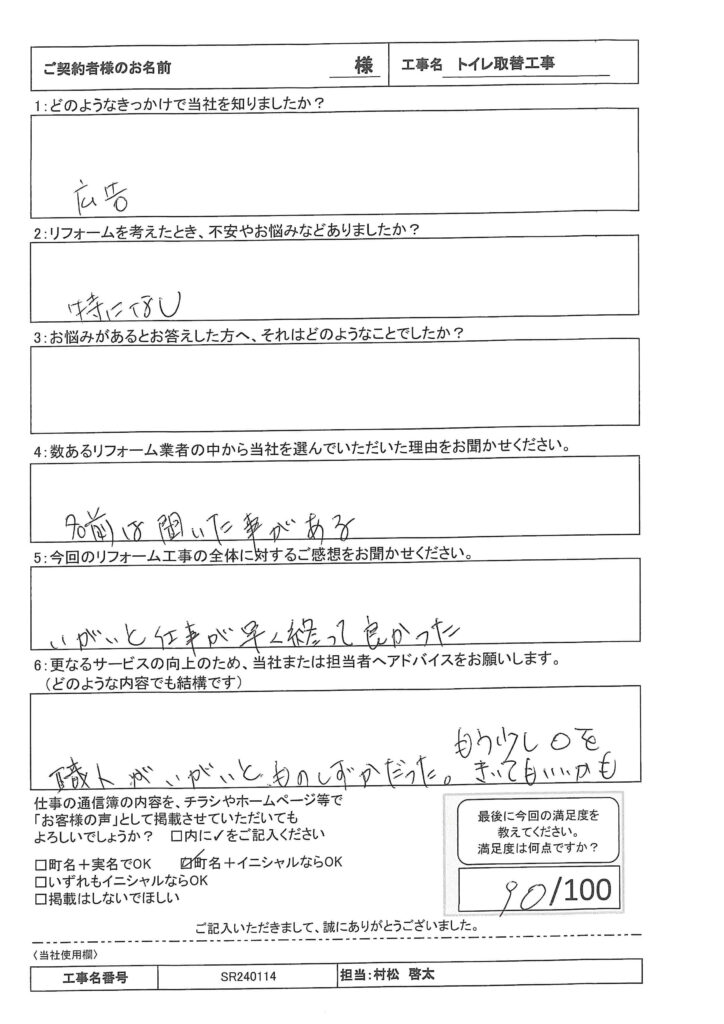 ご契約者様のお名前 様 工事名 トイレ取替工事
1:どのようなきっかけで当社を知りましたか?
広告
2:リフォームを考えたとき、不安やお悩みなどありましたか?
特になし
3:お悩みがあるとお答えした方へ、それはどのようなことでしたか?
4:数あるリフォーム業者の中から当社を選んでいただいた理由をお聞かせください。
名前は聞いた事がある
5:今回のリフォーム工事の全体に対するご感想をお聞かせください。
いがいと仕事が早く終って良かった
6:更なるサービスの向上のため、当社または担当者へアドバイスをお願いします。
(どのような内容でも結構です)
職人がいがいと、ものしずかだった。もう少し口を
きいてもいいかも
仕事の通信簿の内容を、チラシやホームページ等で
「お客様の声」として掲載させていただいても
よろしいでしょうか? □内に✓をご記入ください
□町名+実名でOK ☑町名+イニシャルならOK
□いずれもイニシャルならOK
□掲載はしないでほしい
最後に今回の満足度を
教えてください。
満足度は何点ですか?
90/100
ご記入いただきまして、誠にありがとうございました。
〈当社使用欄〉
工事名番号 SR240114 担当:村松 啓太